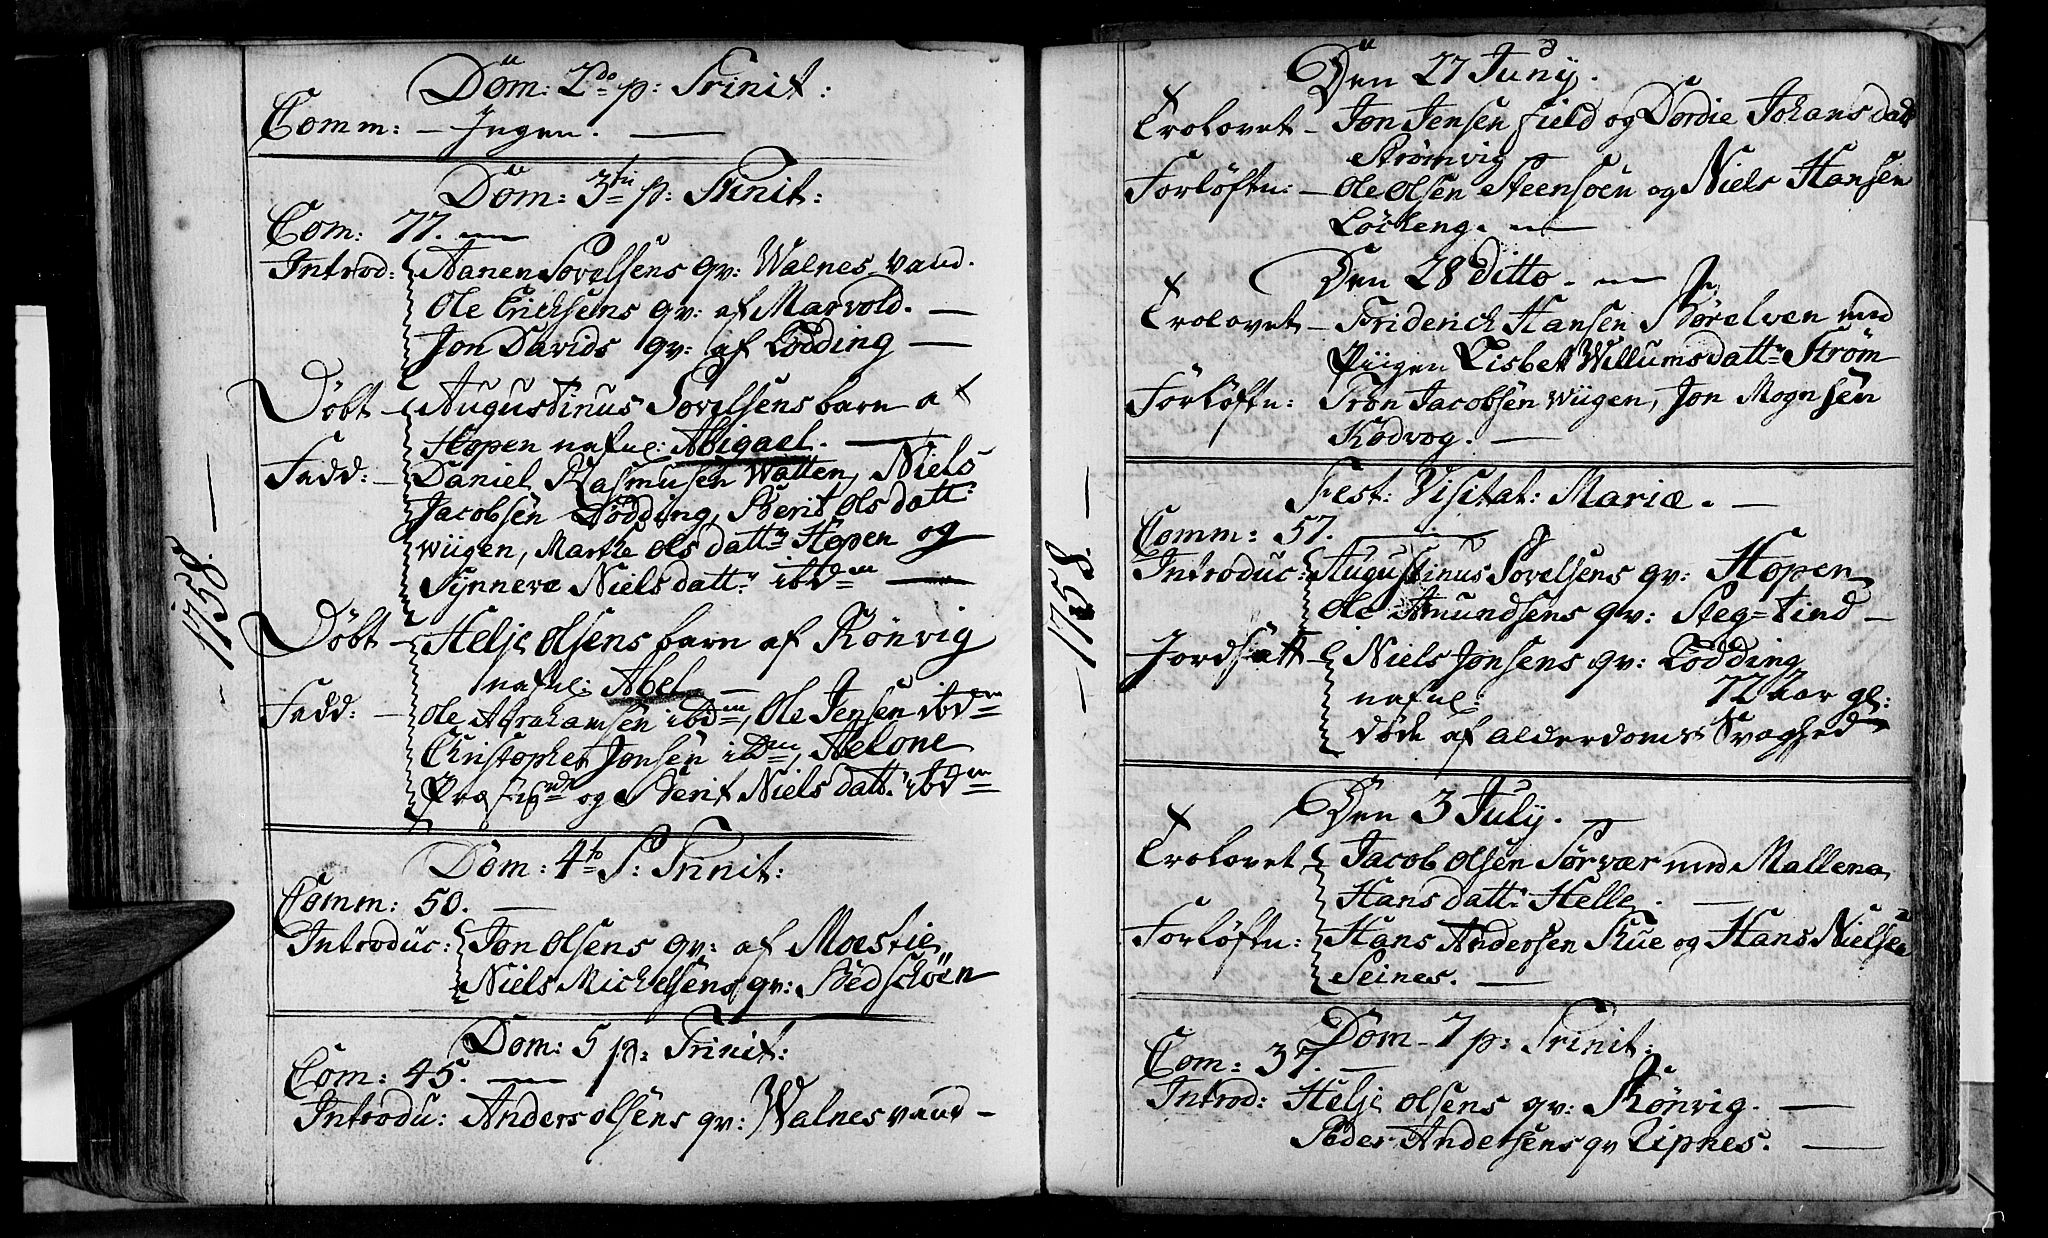 1758.
Dom: 2do p: Trinit:
Comm: – Ingen.
Dom: 3tia p: Trinit:
Com: 77.
Introd: Aanen Sovelsens qv: Walnes-vand.
Ole Ericksens qv: af Marvold.
Jon Davids qv: af Lødding
Døbt – Augustinus Sovelsens barn af
Hopen nafnl: Abigael.
Fadd: – Daniel Rasmusen Watten, Niels
Jacobsen Lødding, Berit Olsdatt:
Wiigen, Marthe Olsdattr Hopen og
Synneve Nielsdattr ibdm
Døbt – Helje Olsens barn af Rønvig
nafnl: Abel
Fadd: – Ole Abrahamsen ibdm, Ole Jensen ibdm
Christopher Jonsen ibdm, Helone
og Berit Nielsdatt: ibdm
Dom: 4to P: Trinit:
Comm: 50.
Introduc: Jon Olsens qv: af Mæstie
Niels Mickelsens qv: Bedschöen
Dom: 5 p: Trinit:
Com: 45.
Introdu: Anders Olsens qv: Walnesvand –
1758.
Den 27 Juny.
Trolovet – Jon Jensen Field og Dordie Johansdatt
Strømvig
Forløftn: – Ole Olsen Steensoen og Niels Hansen
Löckeng.
Den 28 ditto.
Trolovet – Friderick Hansen Børelven med
Piigen Lisbet Willumsdattr Strøm
Forløftn: Tron Jacobsen Wiigen, Jon Mognsen
Kodvog.
Fest: Visitat: Mariæ.
Comm: 57.
Introduc: Augustinus Sovelsens qv: Hopen
Ole Amundsens qv: Steg=tind –
Jordsatt – Niels Jonsens qv: Lödding
nafnl: 72 Aar gl:
døde af Alderdoms Svaghed
Den 3 July.
Trolovet Jacob Olsen Sørvær med Mallena
Hansdattr Helle.
Forløftn: Hans Andersen Skue og Hans Nielsen
Seines.
Dom – 7 p: Trinit:
Com: 37.
Introd: Helje Olsens qv: Rönvig.
Peder Andersens qv Lipnes.